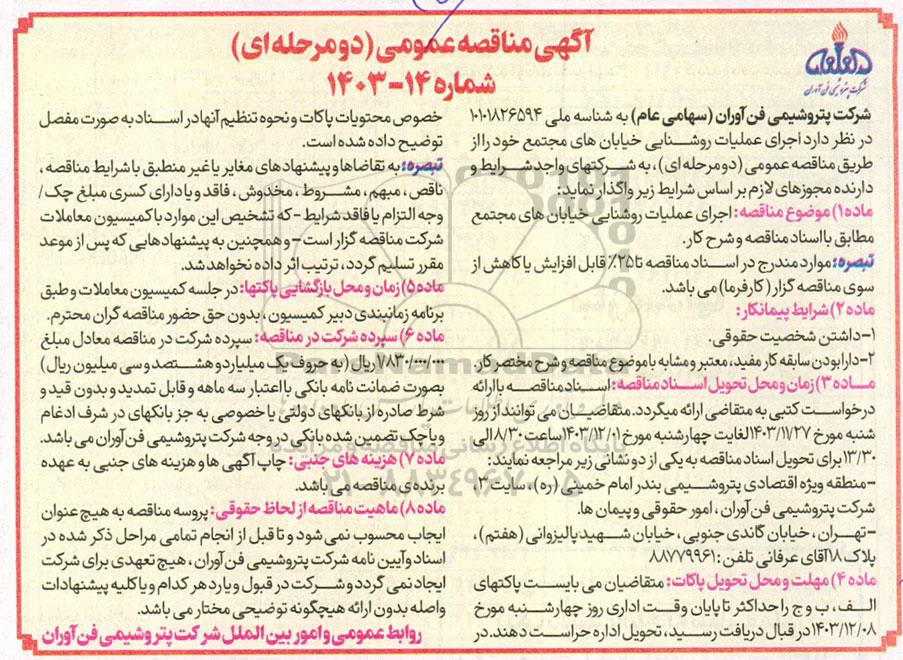 آگهی مناقصه عمومی (دو مرحله ای)
شماره ۱۴-۱۴۰۳
شرکت پتروشیمی فن آوران
شرکت پتروشیمی فن آوران (سهامی عام) به شناسه ملی ۱۰۱۰۱۸۲۶۵۹۴
در نظر دارد اجرای عملیات روشنایی خیابان های مجتمع خود را از
طریق مناقصه عمومی (دو مرحله ای)، به شرکتهای واجد شرایط و
دارنده مجوزهای لازم بر اساس شرایط زیر واگذار نماید:
ماده۱) موضوع مناقصه: اجرای عملیات روشنایی خیابان های مجتمع
مطابق با اسناد مناقصه و شرح کار.
تبصره: موارد مندرج در اسناد مناقصه تا ۲۵٪ قابل افزایش یا کاهش از
سوی مناقصه گزار (کارفرما) می باشد.
ماده ۲) شرایط پیمانکار:
۱-داشتن شخصیت حقوقی.
۲-دارا بودن سابقه کار مفید، معتبر و مشابه با موضوع مناقصه و شرح مختصر کار.
ماده ۳) زمان و محل تحویل اسناد مناقصه: اسناد مناقصه با ارائه
درخواست کتبی به متقاضی ارائه میگردد. متقاضیان می توانند از روز
شنبه مورخ ۱۴۰۳/۱۱/۲۷ لغایت چهارشنبه مورخ ۱۴۰۳/۱۲/۰۱ ساعت ۸/۳۰ الی
۱۳/۳۰ برای تحویل اسناد مناقصه به یکی از دو نشانی زیر مراجعه نمایند:
-منطقه ویژه اقتصادی پتروشیمی بندر امام خمینی (ره)، سایت ۳،
شرکت پتروشیمی فن آوران، امور حقوقی و پیمان ها.
-تهران، خیابان گاندی جنوبی، خیابان شهید پالیزوانی (هفتم)،
پلاک ۱۸ آقای عرفانی تلفن: ۸۸۷۷۹۹۶۱
ماده ۴) مهلت و محل تحویل پاکات: متقاضیان می بایست پاکتهای
الف، ب و ج را حداکثر تا پایان وقت اداری روز چهارشنبه مورخ
۱۴۰۳/۱۲/۰۸ در قبال دریافت رسید، تحویل اداره حراست دهند. در
خصوص محتویات پاکات و نحوه تنظیم آنها در اسناد به صورت مفصل
توضیح داده شده است.
تبصره: به تقاضاها و پیشنهادهای مغایر یا غیر منطبق با شرایط مناقصه،
ناقص، مبهم، مشروط، مخدوش، فاقد و یا دارای کسری مبلغ چک/
وجه التزام یا فاقد شرایط - که تشخیص این موارد با کمیسیون معاملات
شرکت مناقصه گزار است - و همچنین به پیشنهادهایی که پس از موعد
مقرر تسلیم گردد، ترتیب اثر داده نخواهد شد.
ماده۵) زمان و محل بازگشایی پاکتها: در جلسه کمیسیون معاملات و طبق
برنامه زمانبندی دبیر کمیسیون، بدون حق حضور مناقصه گران محترم.
ماده ۶) سپرده شرکت در مناقصه: سپرده شرکت در مناقصه معادل مبلغ
۱/۸۳۰/۰۰۰/۰۰۰ ریال (به حروف یک میلیارد و هشتصد و سی میلیون ریال)
بصورت ضمانت نامه بانکی با اعتبار سه ماهه و قابل تمدید و بدون قید و
شرط صادره از بانکهای دولتی یا خصوصی به جز بانکهای در شرف ادغام
و یا چک تضمین شده بانکی در وجه شرکت پتروشیمی فن آوران می باشد.
ماده ۷) هزینه های جنبی: چاپ آگهی ها و هزینه های جنبی به عهده
برنده‌ی مناقصه می باشد.
ماده۸) ماهیت مناقصه از لحاظ حقوقی: پروسه مناقصه به هیچ عنوان
ایجاب محسوب نمی شود و تا قبل از انجام تمامی مراحل ذکر شده در
اسناد و آیین نامه شرکت پتروشیمی فن آوران، هیچ تعهدی برای شرکت
ایجاد نمی گردد و شرکت در قبول و یا رد هر کدام و یا کلیه پیشنهادات
واصله بدون ارائه هیچگونه توضیحی مختار می باشد.
روابط عمومی و امور بین الملل شرکت پتروشیمی فن آوران